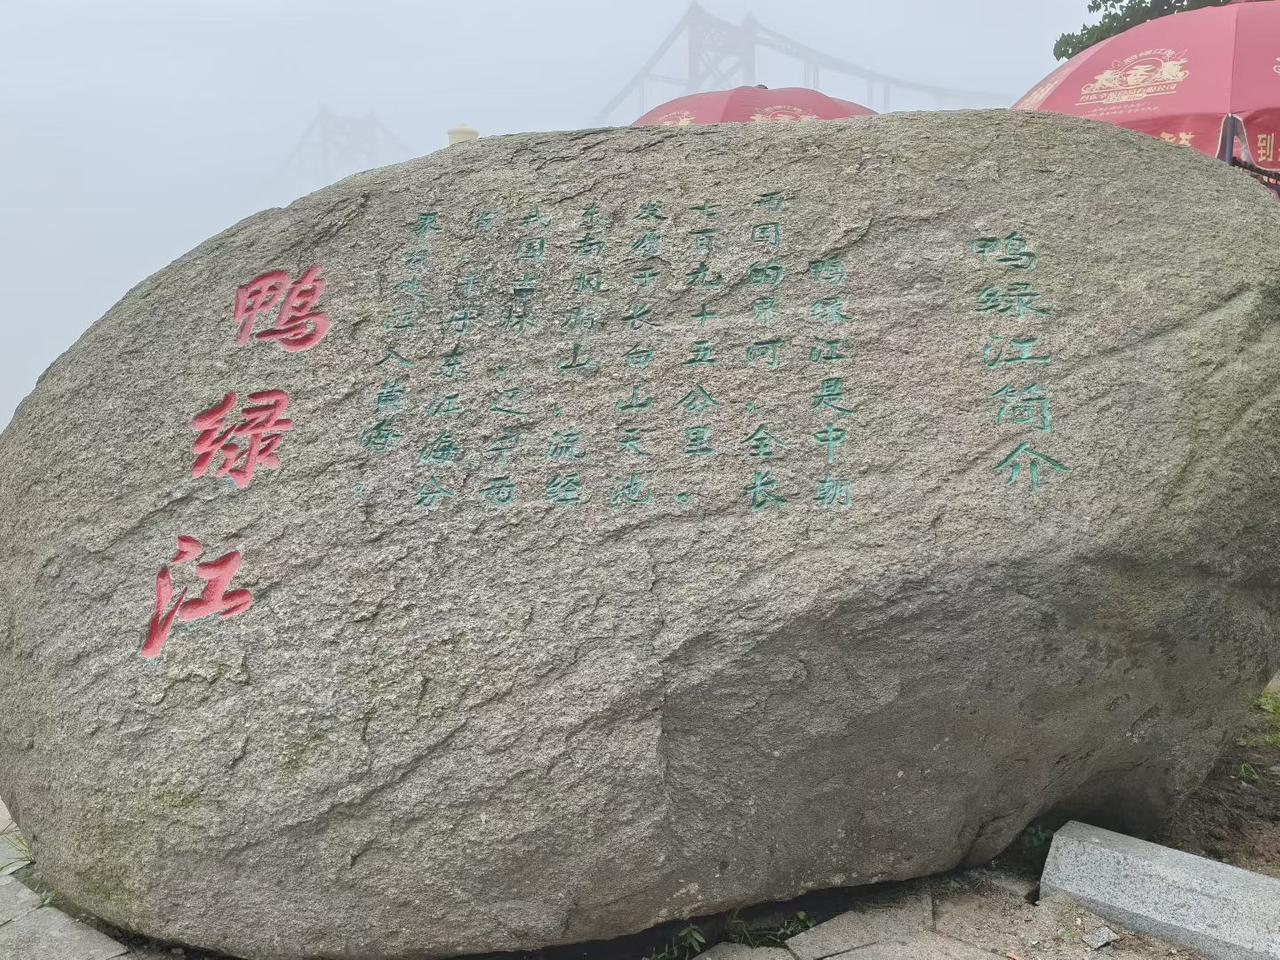 鸭绿江简介
鸭绿江是中朝
两国的界河，全长
七百九十五公里。
发源于长白山天池
东南 山，流经
我国吉林，辽宁两
省 于 东江海分
界 地注入黄海。
鸭绿江